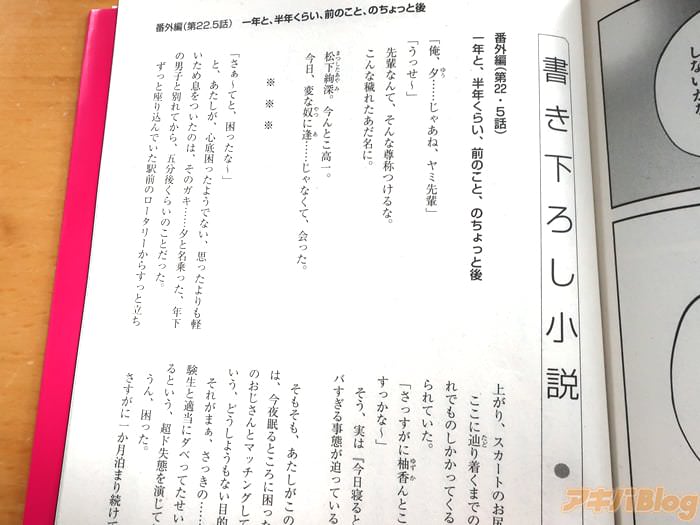 番外編(第22.5話) 一年と、半年くらい、前のこと、のちょっと後
書き下ろし小説●
番外編(第22・5話)
一年と、半年くらい、前のこと、のちょっと後
「俺、夕……じゃあね、ヤミ先輩」
「うっせ〜」
先輩なんて、そんな尊称つけるな。
こんな穢れたあだ名に。
松下絢深。今んとこ高一。
今日、変な奴に逢……じゃなくて、会った。
※ ※ ※
「さぁ〜てと、困ったな〜」
と、あたしが、心底困ったようでない、思ったよりも軽
いため息をついたのは、そのガキ……夕と名乗った、年下
の男子と別れてから、五分後くらいのことだった。
ずっと座り込んでいた駅前のロータリーからすっと立ち
上がり、スカートのお尻
ここに辿り着くまでの
れでものしかかってくる
られていた。
「さっすがに柚香んとこ
すっかな〜」
そう、実は『今日寝ると
バすぎる事態が迫っている
そもそも、あたしがこの
は、今夜眠るところに困った
のおじさんとマッチングして
いう、どうしようもない目的
それがまぁ、さっきの……
験生と適当にダベってたせい
るという、超ド失態を演じて
うん、困った。
さすがに一か月泊まり続けて
しないか
アキバBlog